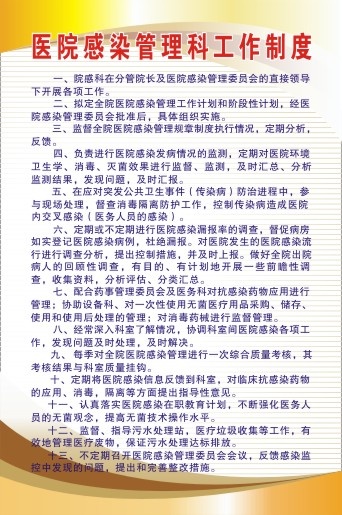 医院感染管理科工作制度
一、院感科在分管院长及医院感染管理委员会的直接领导
下开展各项工作。
二、拟定全院医院感染管理工作计划和阶段性计划，经医
院感染管理委员会批准后，具体组织实施。
三、监督全院医院感染管理规章制度执行情况，定期分析，
反馈。
四、负责进行医院感染发病情况的监测，定期对医院环境
卫生学、消毒、灭菌效果进行监督、监测，及时汇总、分析
监测结果，发现问题，及时汇报。
五、在应对突发公共卫生事件（传染病）防治进程中，参
与现场处理，督查消毒隔离防护工作，控制传染病造成医院
内交叉感染（医务人员的感染）。
六、定期或不定期进行医院感染漏报率的调查，督促病房
如实登记医院感染病例，杜绝漏报。对医院发生的医院感染流
行进行调查分析，提出控制措施，并及时上报。做好全院出院
病人的回顾性调查，有目的、有计划地开展一些前瞻性调
查，收集资料，分析评估、分类汇总。
七、配合药事管理委员会及医务科对抗感染药物应用进行
管理；协助设备科、对一次性使用无菌医疗用品采购、储存、
使用和使用后处理的管理；对消毒药械进行监督管理。
八、经常深入科室了解情况，协调科室间医院感染各项工
作，发现问题及时处理，及时解决。
九、每季对全院医院感染管理进行一次综合质量考核，其
考核结果与科室质量挂钩。
十、定期将医院感染信息反馈到科室，对临床抗感染药物
的应用、消毒，隔离等方面提出指导性意见。
十一、认真落实医院感染在职教育计划，不断强化医务人
员的无菌观念，提高无菌技术操作水平。
十二、监督、指导污水处理站，医疗垃圾收集等工作，有
效地管理医疗废物，保证污水处理达标排放。
十三、不定期召开医院感染管理委员会会议，反馈感染监
控中发现的问题，提出和完善整改措施。